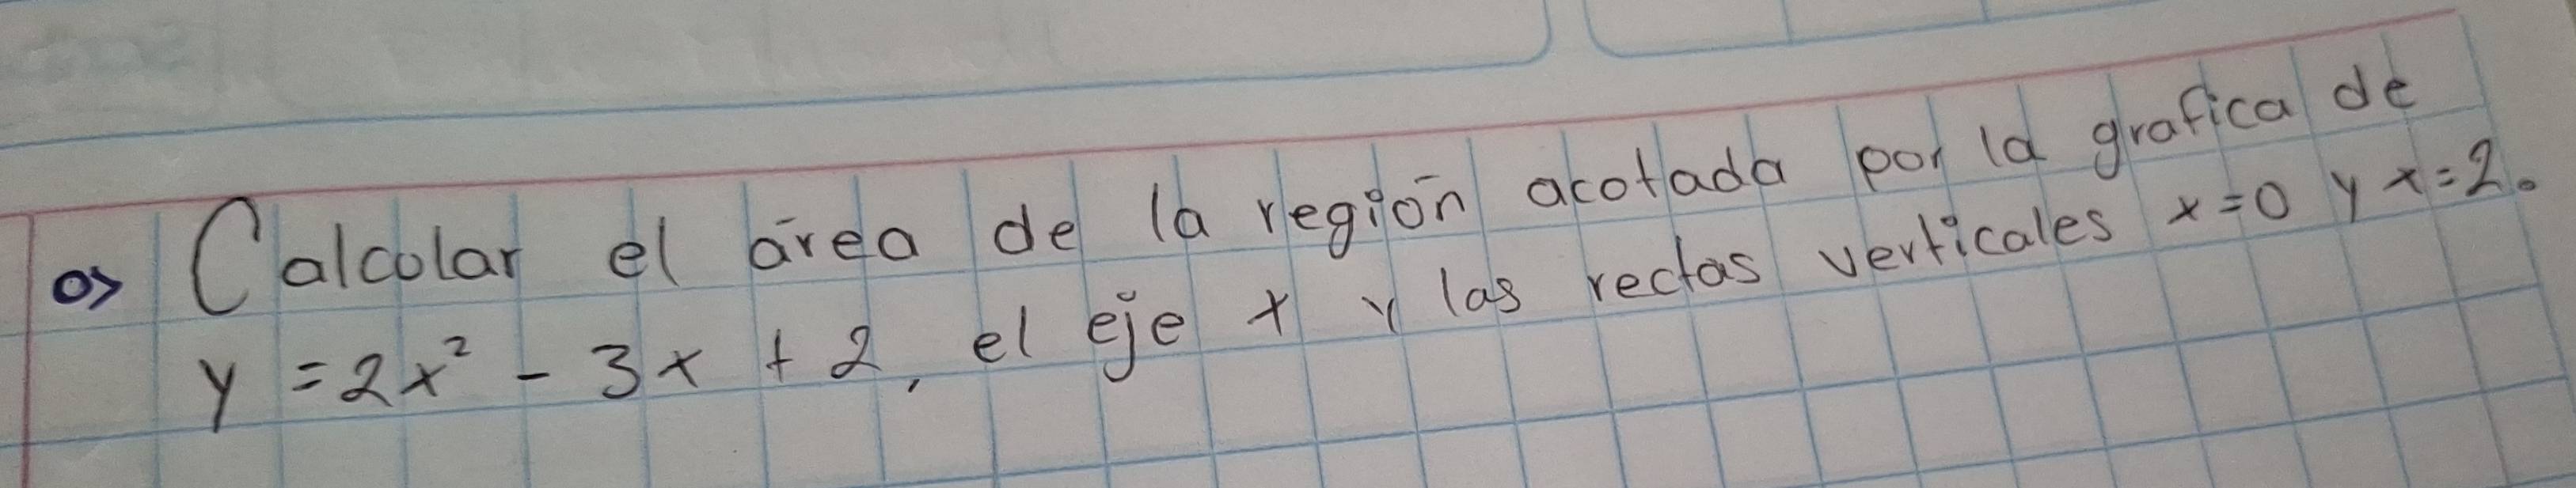 o> Calcolar el área de la región acotada por la grafica de
y = 2x² - 3x + 2, el eje x y las rectas verticales x=0 y x=2.